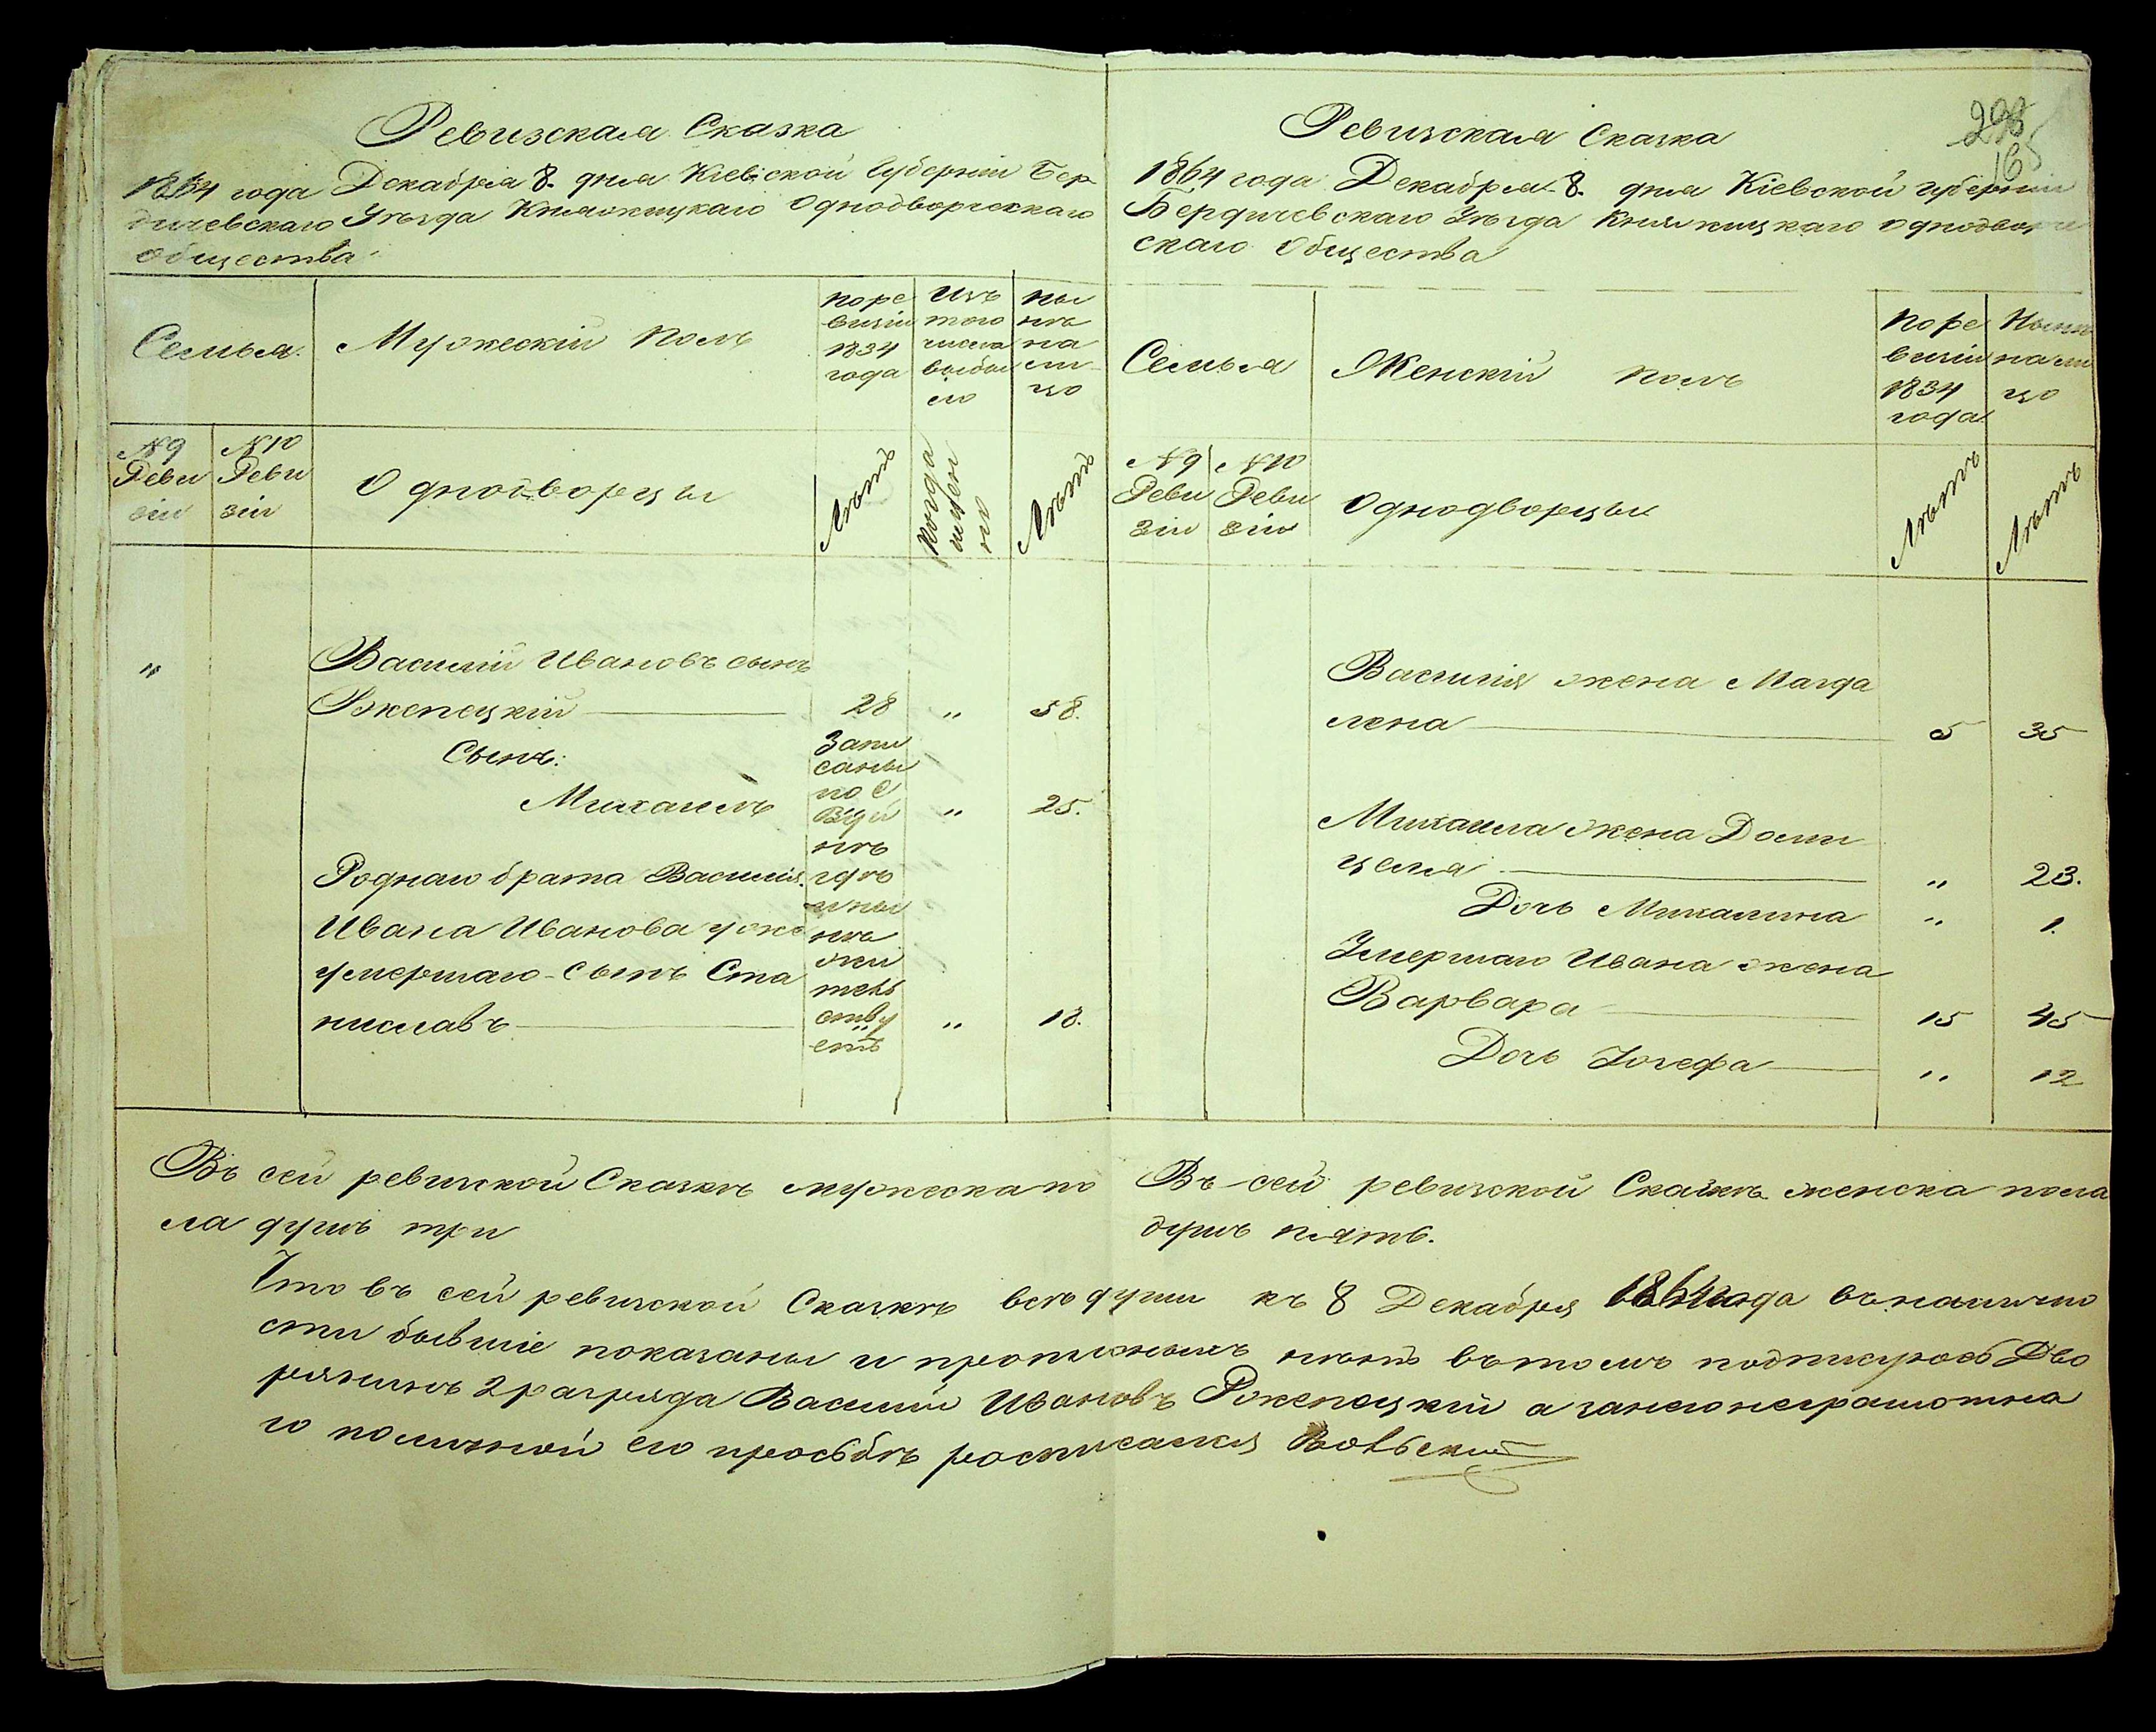 Ревизская Сказка
1864 года Декабря 8. дня Кіевской Губерніи Бер
дичевскаго Уѣзда Княжицкаго Однодворческаго
Общества
Семья.
Мужескій Полъ
по ре
визіи
1834
года
Изъ
того
числа
выбы
ло
ны
нѣ
на
ли
цо
№ 9
Реви
зіи
№ 10
Реви
зіи
Однодворцы
Лѣтъ
Когда
именно
Лѣтъ
"
Василій Ивановъ сынъ
Ржепецкій 28 " 58.
Сынъ:
Михаилъ " 25.
Роднаго брата Василія.
Ивана Иванова уже
умершаго сынъ Ста
ниславъ " 13.
Запи
саны
по
нѣ
гдѣ
жи
тель
ству
етъ
Въ сей ревизской Сказкѣ мужеска по
ла душъ три
Ревизская Сказка
298
165
1864 года Декабря 8. дня Кіевской губерніи
Бердичевскаго Уѣзда Княжицкаго однодворче
скаго Общества
Семья
Женскій полъ
По ре
визіи
1834
года
Нынѣ
на ли
цо
№ 9
Реви
зіи
№ 10
Реви
зіи
Однодворцы
Лѣтъ
Лѣтъ
Василія жена Магда
лена 5 35
Михаила жена Доми
целя " 23.
Дочь Михалина " 1.
Умершаго Ивана жена
Варвара 15 45
Дочь Юзефа " 12
Въ сей ревизской Сказкѣ женска пола
душъ пять.
Что въ сей ревизской Сказкѣ всѣ души къ 8 Декабря 1864 года въ налично
сти бывшіе показаны и прописныхъ нѣтъ въ томъ подписуюсь Дво
рянинъ 2 разряда Василій Ивановъ Ржепецкій а за него неграмотна
го по личной его просьбѣ росписался